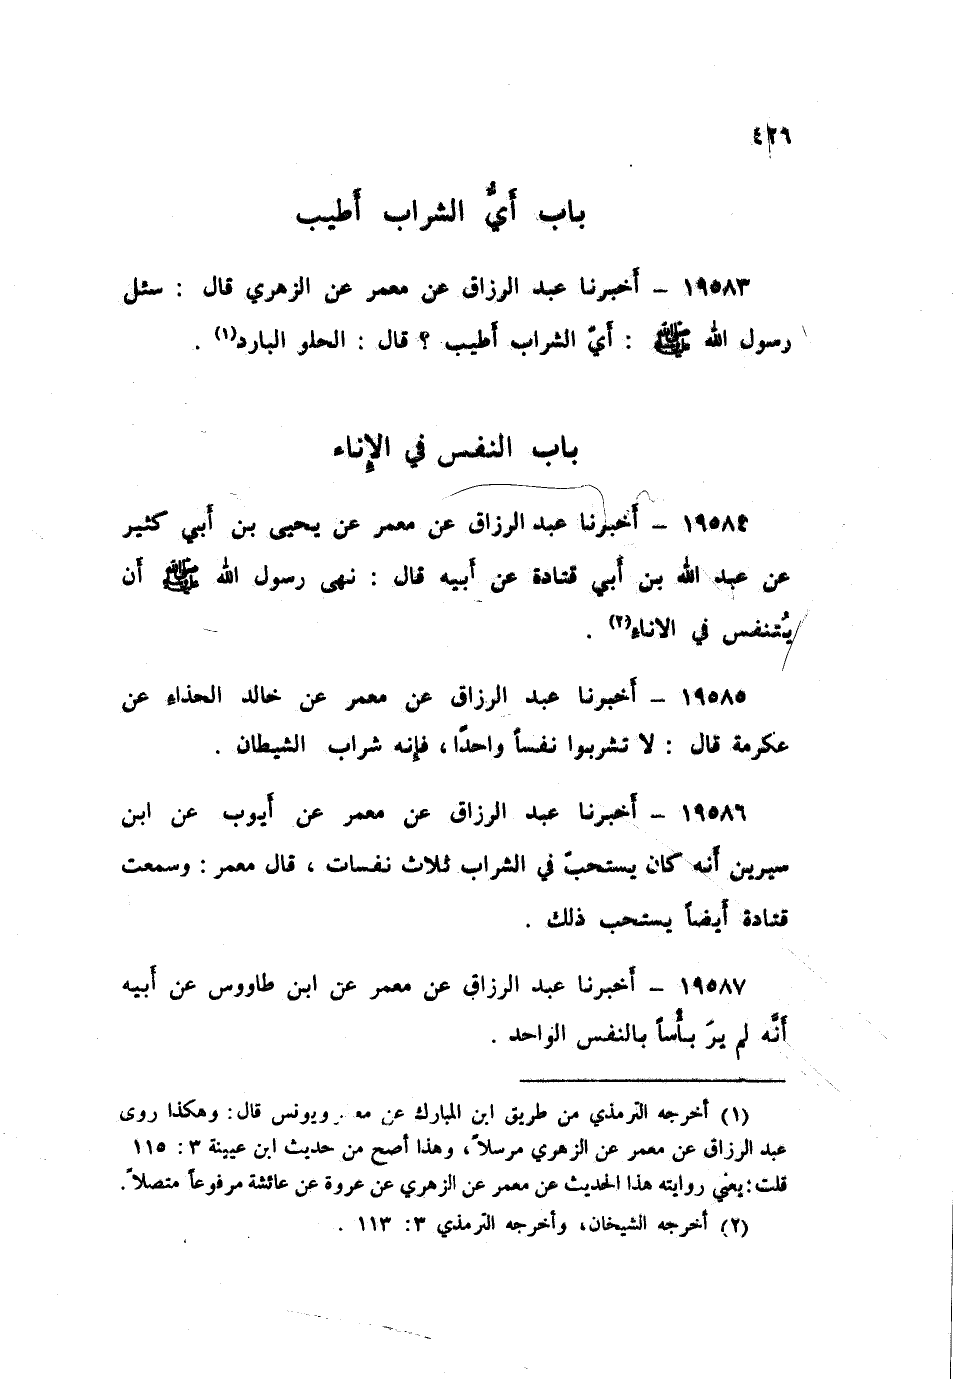 ٤٢٦
باب أَيُّ الشراب أَطيب
١٩٥٨٣ – أَخبرنا عبد الرزاق عن معمر عن الزهري قال : سئل
رسول الله ﷺ : أَيّ الشراب أَطيب ؟ قال : الحلو البارد(١) .
باب النفس في الإِناء
١٩٥٨٤ – أَخبرنا عبد الرزاق عن معمر عن يحيى بن أَبي كثير
عن عبد الله بن أَبي قتادة عن أَبيه قال : نهى رسول الله ﷺ أَن
يُتنفس في الاناء(٢) .
١٩٥٨٥ – أَخبرنا عبد الرزاق عن معمر عن خالد الحذاء عن
عكرمة قال : لا تشربوا نفساً واحدًا، فإِنه شراب الشيطان .
١٩٥٨٦ – أَخبرنا عبد الرزاق عن معمر عن أَيوب عن ابن
سيرين أَنه كان يستحبّ في الشراب ثلاث نفسات ، قال معمر : وسمعت
قتادة أَيضاً يستحب ذلك .
١٩٥٨٧ – أَخبرنا عبد الرزاق عن معمر عن ابن طاووس عن أَبيه
أَنَّه لم يرَ بأْساً بالنفس الواحد .
(١) أخرجه الترمذي من طريق ابن المبارك عن ويونس قال: وهكذا روى
عبد الرزاق عن معمر عن الزهري مرسلاً، وهذا أصح من حديث ابن عيينة ٣ : ١١٥
قلت: يعني روايته هذا الحديث عن معمر عن الزهري عن عروة عن عائشة مرفوعاً متصلاً.
(٢) أخرجه الشيخان، وأخرجه الترمذي ٣: ١١٣ .